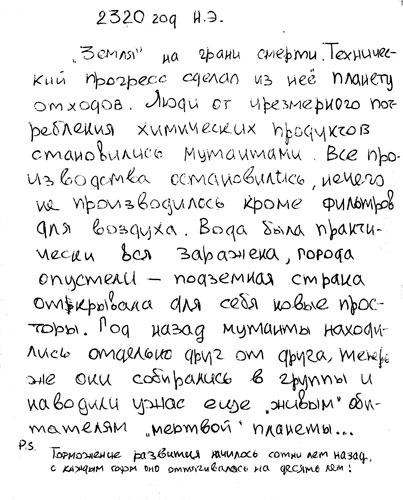 2320 год Н.Э.
„Земля" на грани смерти. Техничес-
кий прогресс сделал из неё планету
отходов. Люди от чрезмерного пот-
ребления химических продуктов
становились мутантами. Все про-
изводства остановились, ничего
не производилось кроме фильтров
для воздуха. Вода была практи-
чески вся заражена, города
опустели – подземная страна
открывала для себя новые прос-
торы. Год назад мутанты находи-
лись отдельно друг от друга, теперь
же они собирались в группы и
наводили ужас еще „живым" оби-
тателям „мертвой" планеты...
P.S. Торможение развития началось сотни лет назад,
с каждым годом оно оттягивалось на десять лет!